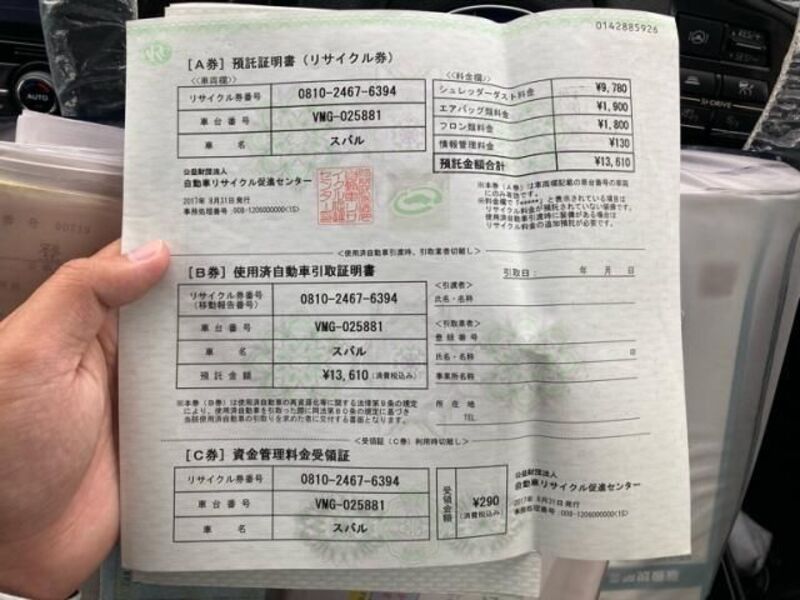 0142885926
[A券] 預託証明書(リサイクル券)
<<車両欄>>
リサイクル券番号 0810-2467-6394
車台番号 VMG-025881
車名 スバル
<<料金欄>>
シュレッダーダスト料金 ¥9,780
エアバッグ類料金 ¥1,900
フロン類料金 ¥1,800
情報管理料金 ¥130
預託金額合計 ¥13,610
公益財団法人
自動車リサイクル促進センター
2017年 8月31日発行
事務処理番号:008-1206000000(1S)
※本券(A券)は車両欄記載の車台番号の車両
にのみ有効です。
※料金欄で「*****」と表示されている項目は
リサイクル料金が預託されていない装備です。
使用済自動車引渡時に装備がある場合は
リサイクル料金の追加預託が必要です。
<使用済自動車引渡時、引取業者切離し>
[B券] 使用済自動車引取証明書
引取日: 年 月 日
リサイクル券番号
(移動報告番号) 0810-2467-6394
車台番号 VMG-025881
車名 スバル
預託金額 ¥13,610(消費税込み)
<引渡者>
氏名・名称
<引取業者>
登録番号
氏名・名称 印
事業所名称
所在地
TEL
※本券(B券)は使用済自動車の再資源化等に関する法律第9条の規定
により、使用済自動車を引取った際に同法第80条の規定に基づき
当該使用済自動車の引取りを求めた者に交付する書面となります。
<受領証(C券)利用時切離し>
[C券] 資金管理料金受領証
リサイクル券番号 0810-2467-6394
車台番号 VMG-025881
車名 スバル
受領金額 ¥290
(消費税込み)
公益財団法人
自動車リサイクル促進センター
2017年 8月31日発行
事務処理番号:008-1206000000(1S)
AUTO
SI-DRIVE